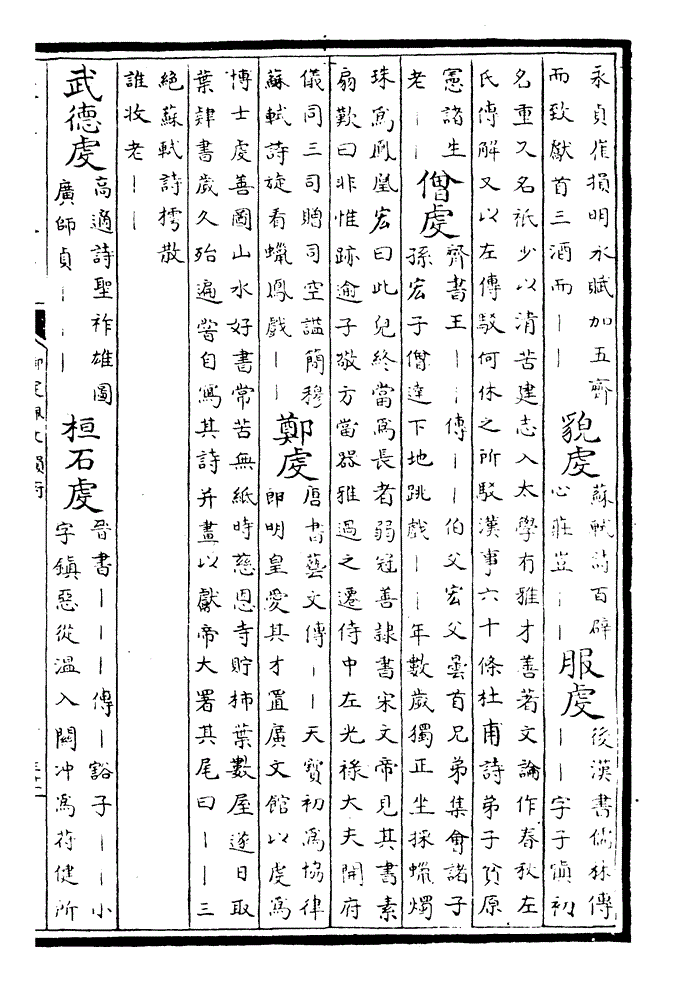 永貞崔損明水賦加五齊
而致獻首三酒而｜｜
貌虔
蘇軾詩百辟
心莊豈｜｜
服虔
後漢書儒林傳
｜｜字子慎初
名重又名祇少以清苦建志入太學有雅才善著文論作春秋左
氏傳解又以左傳駮何休之所駮漢事六十條杜甫詩弟子貧原
憲諸生
老｜｜
僧虔
齊書王｜｜傳｜｜伯父宏父曇首兄弟集會諸子
孫宏子僧達下地跳戲｜｜年數歲獨正坐採蠟燭
珠為鳳凰宏曰此兒終當為長者弱冠善隸書宋文帝見其書素
扇歎曰非惟跡逾子敬方當器雅過之遷侍中左光祿大夫開府
儀同三司贈司空謚簡穆
蘇軾詩旋看蠟鳳戲｜｜
鄭虔
唐書藝文傳｜｜天寶初為協律
郎明皇愛其才置廣文館以虔為
博士虔善圖山水好書常苦無紙時慈恩寺貯柿葉數屋遂日取
葉肄書歲久殆遍嘗自寫其詩并畫以獻帝大署其尾曰｜｜三
絕蘇軾詩樗散
誰收老｜｜
武德虔
高適詩聖祚雄圖
廣師貞｜｜｜
桓石虔
晉書｜｜｜傳｜豁子｜｜小
字鎮惡從溫入關冲為苻健所